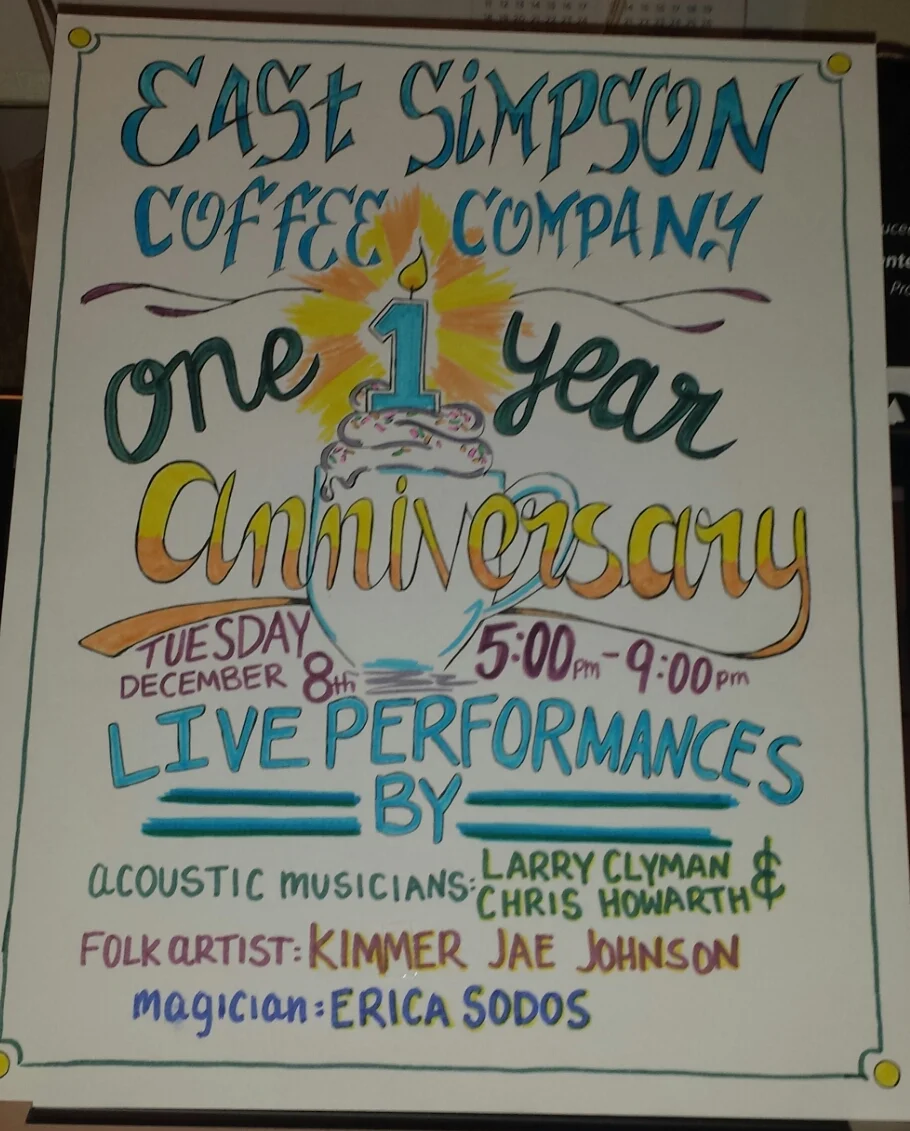 EAST SiMPSON
COFFEE COMPANY
one 1 year
anniversary
TUESDAY
DECEMBER 8th
5:00pm - 9:00pm
LIVE PERFORMANCES
BY
aCOUSTIC MUSICIANS: LARRY CLYMAN &
CHRIS HOWARTH
FOLK aRTIST: KIMMER JAE JOHNSON
magician: ERICA SODOS